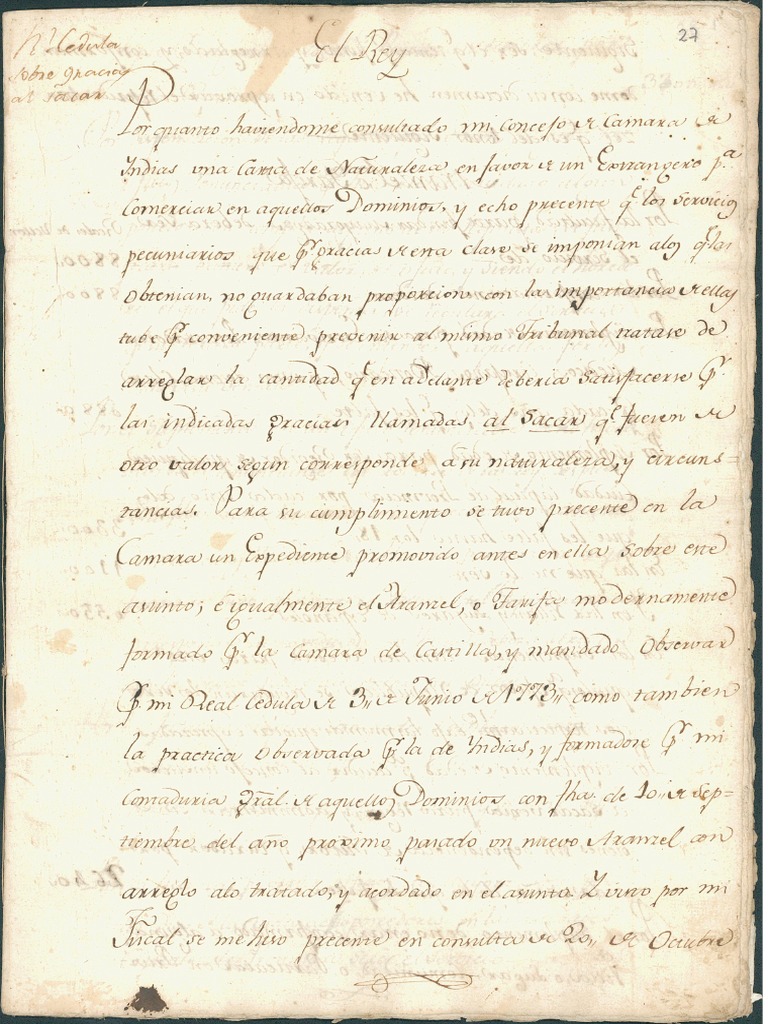 27
Rl Cedula
sobre gracias
al sacar
El Rey
Por quanto haviendome consultado mi Concejo de Camara de
Indias una Carta de Naturaleza en favor de un Extrangero pa
Comerciar en aquellos Dominios, y echo precente qe los servicios
pecuniarios que pr gracias de esta clase se imponian a los qe las
Obtenian, no guardaban proporcion con la importancia de ellas
tube pr conveniente prevenir al mismo Tribunal tratase de
arreglar la cantidad qe en adelante deberia satisfacerse pr
las indicadas gracias llamadas al Sacar qe fuesen de
otro valor segun corresponde a su naturaleza, y circuns=
tancias. Para su cumplimiento se tuvo precente en la
Camara un Expediente promovido antes en ella sobre este
asunto; e igualmente el Aranzel, o Tarifa modernamente
formado pr la Camara de Castilla, y mandado Observar
pr mi Real Cedula de 3,, de Junio de 1773,, como tambien
la practica Observada pr la de Indias, y formadose pr mi
Contaduria Gral. de aquellos Dominios con fha. de 10,, de Sep=
tiembre del año proximo pasado un nuevo Aranzel con
arreglo a lo tratado, y acordado en el asunto. Y visto por mi
Fiscal se me hiso precente en consulta de 20,, de Octubre